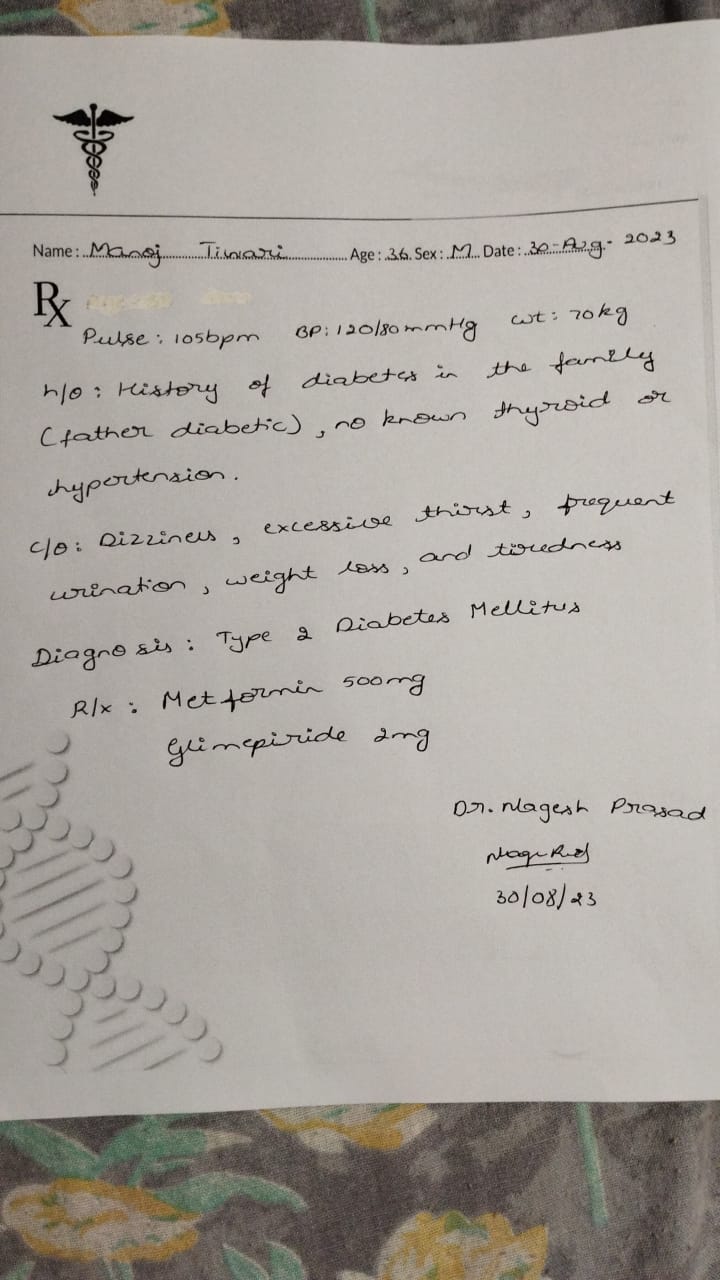 Name: Manoj Tiwari Age: 36 Sex: M Date: 30-Aug-2023
Rx
Pulse: 105bpm BP: 120/80mmHg wt: 70kg
h/o: History of diabetes in the family
(father diabetic), no known thyroid or
hypertension.
c/o: Dizziness, excessive thirst, frequent
urination, weight loss, and tiredness
Diagnosis: Type 2 Diabetes Mellitus
R/x: Metformin 500mg
Glimepiride 2mg
Dr. Nagesh Prasad
30/08/23